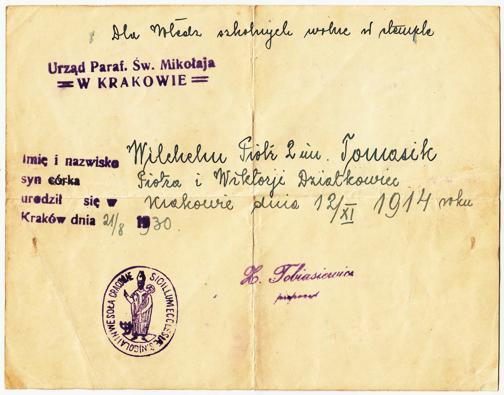 Dla Władz szkolnych wolne od stempla
Urząd Paraf. Św. Mikołaja
W KRAKOWIE
Imię i nazwisko Wilchelm Piotr 2 im. Tomasik
syn córka Piotra i Wiktorji Działkowiec
urodził się w Krakowie dnia 12/XI 1914 roku
Kraków dnia 21/8 1930.
H. Tobiasiewicz
proboszcz
SIGILLUM ECCLESIÆ S. NICOLAI IN WESOŁA CRACOVIÆ